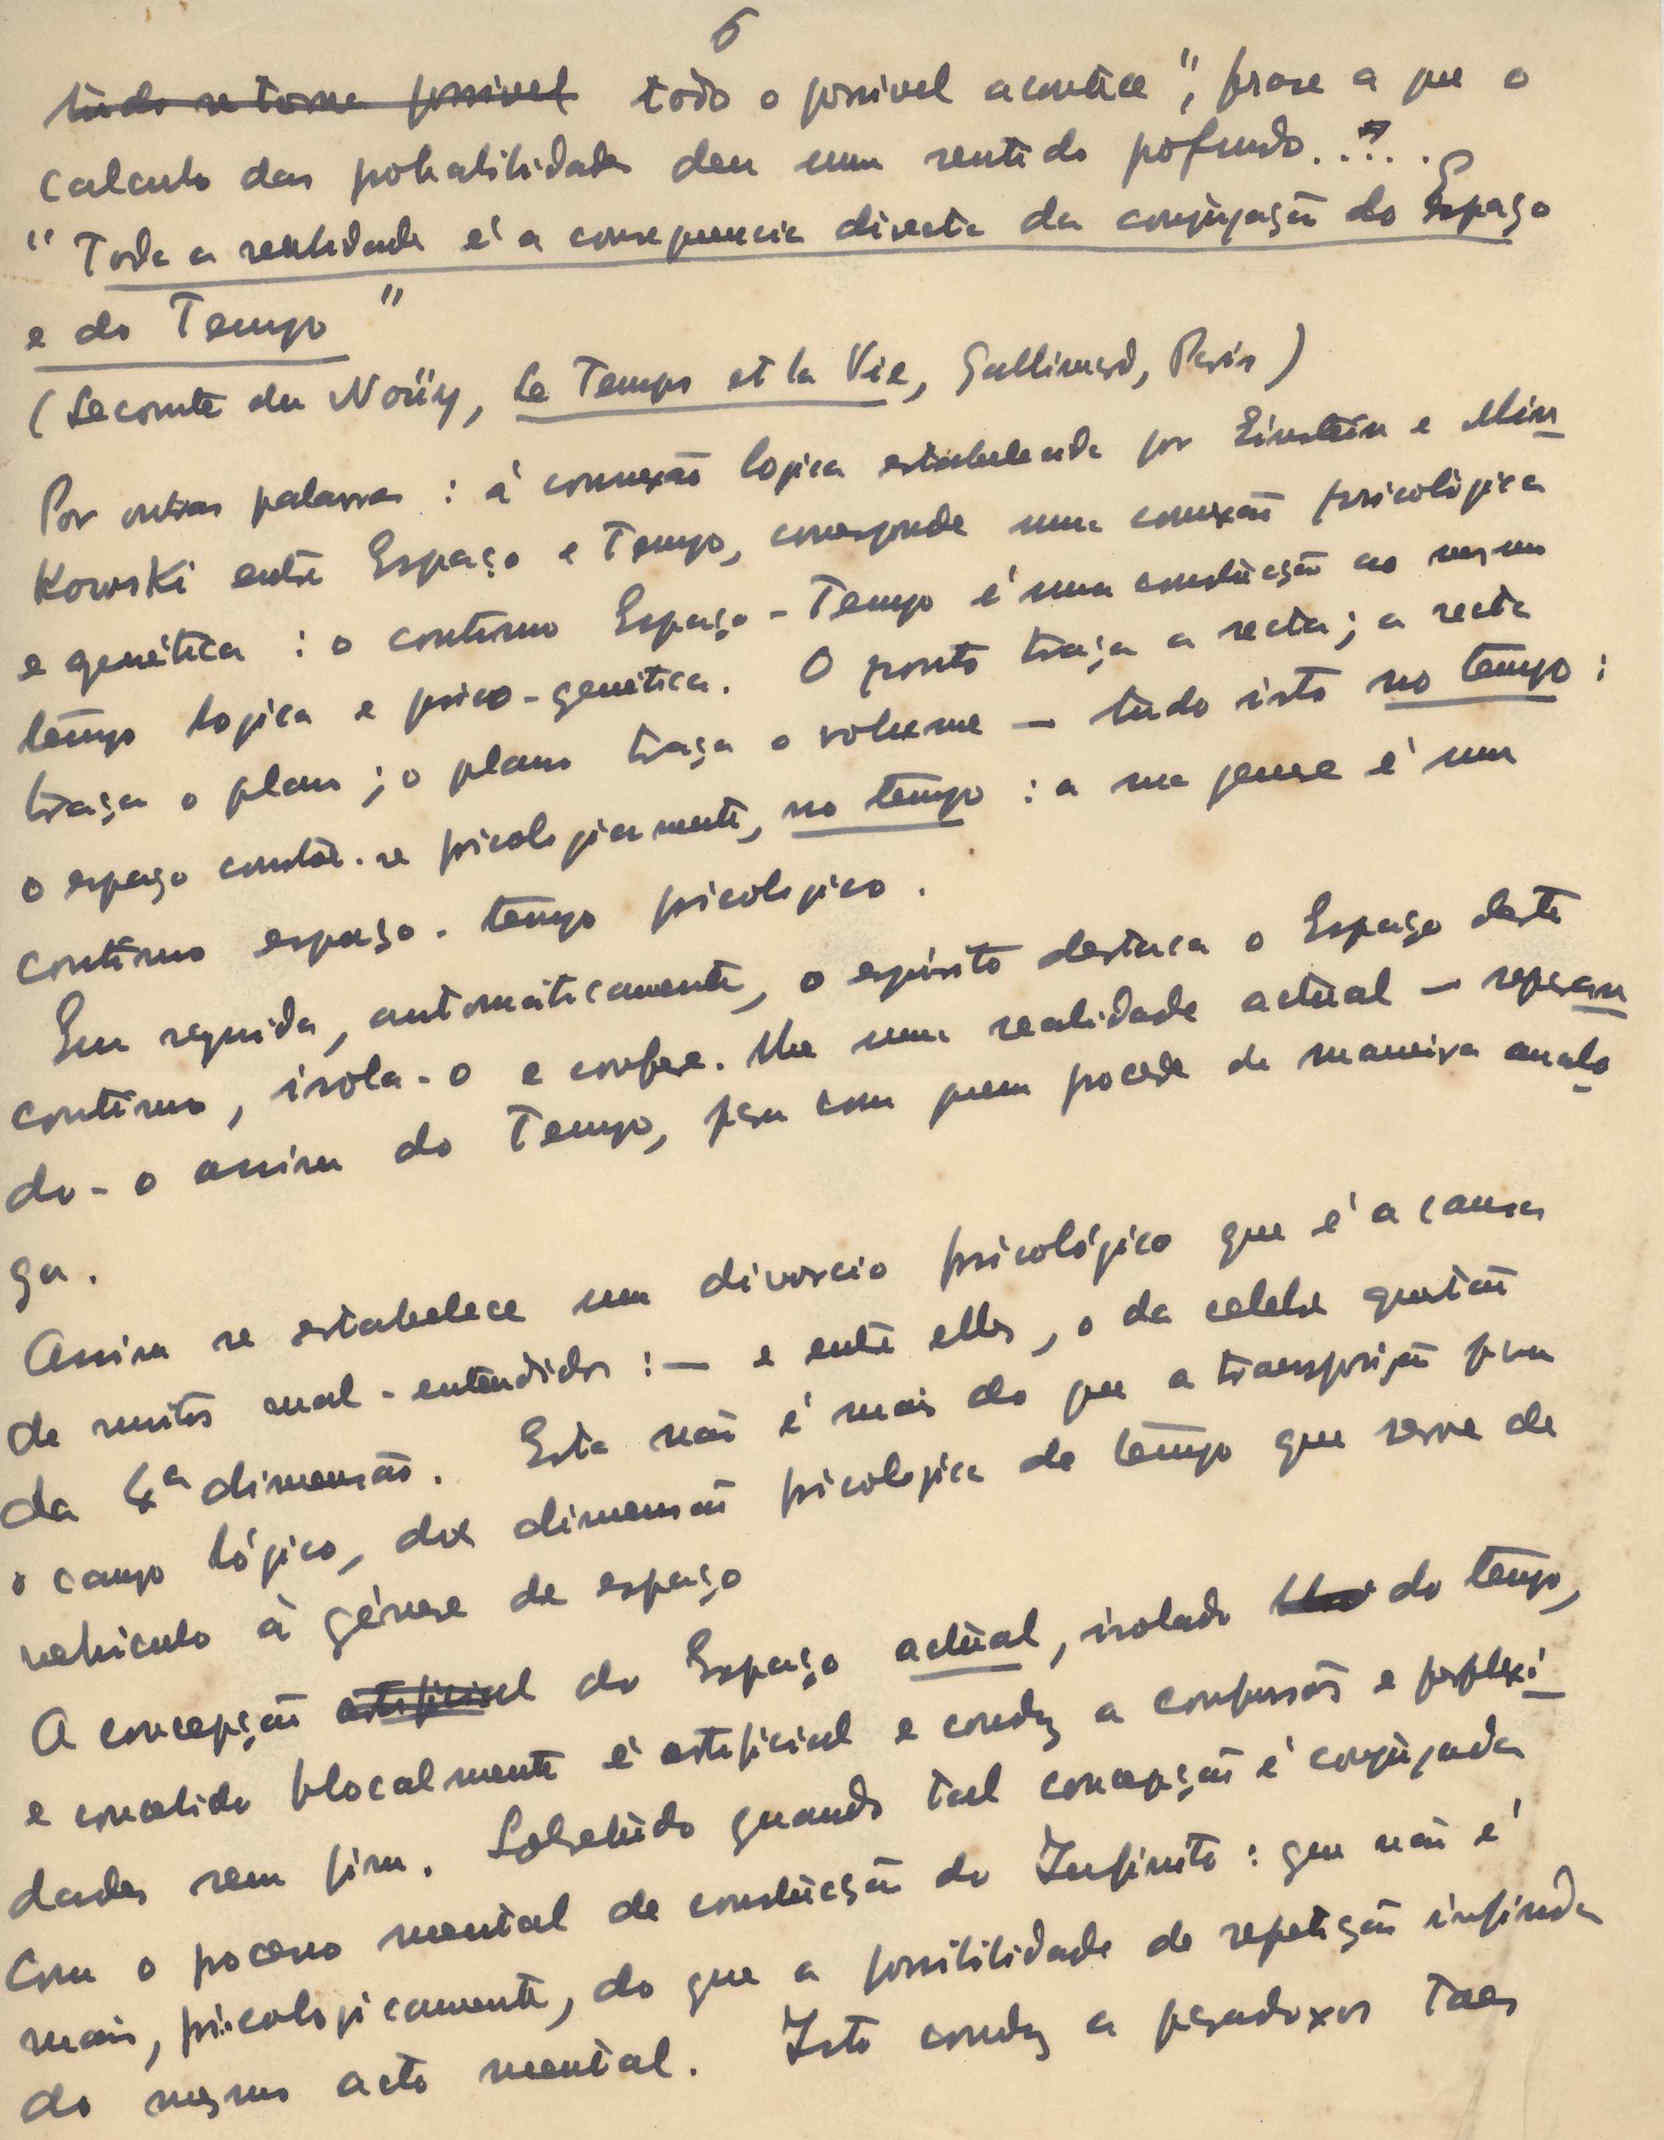 6
tudo se torna possivel todo o possivel acontece", frase a que o
calculo das probabilidades deu um sentido profundo....
"Toda a realidade é a consequencia directa da conjugação do Espaço
e do Tempo"
(Lecomte du Noüy, Le Temps et la Vie, Gallimard, Paris)
Por outras palavras : á connexão logica estabelecida por Einstein e Min
Kowski entre Espaço e Tempo, corresponde uma conexão psicológica
e genética : o contínuo Espaço-Tempo é uma construcção ao mesmo
tempo logica e psico-genética. O ponto traça a recta; a recta
traça o plano ; o plano traça o volume — tudo isto no tempo :
o espaço constroe-se psicologicamente, no tempo : a sua genese é um
contínuo espaço-tempo psicologico.
Em seguida, automáticamente, o espírito destaca o Espaço deste
contínuo, isola-o e confere-lhe uma realidade actual — separan
do-o assim do Tempo, para com quem procede de maneira analo
ga.
Assim se estabelece um divorcio psicológico que é a causa
de muitos mal-entendidos :— e entre elles, o da celebre questão
da 4ª dimensão. Esta não é mais do que a transposição para
o campo lógico, da dimensão psicologica de tempo que serve de
vehiculo à génese de espaço
A concepção artificial do Espaço actual, isolado do tempo,
e concebido blocalmente é artificial e conduz a confusões e perplexi
dades sem fim. Sobretudo quando tal concepção é conjugada
com o processo mental de construcção do Infinito : que não é
mais, psicologicamente, do que a possibilidade de repetição infinda
do mesmo acto mental. Isto conduz a paradoxos taes